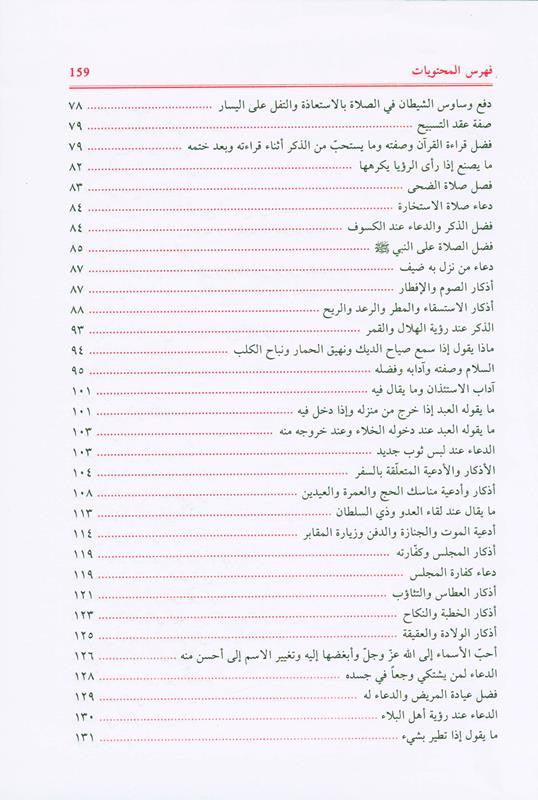 فهرس المحتويات 159
دفع وساوس الشيطان في الصلاة بالاستعاذة والتفل على اليسار ٧٨
صفة عقد التسبيح ٧٩
فضل قراءة القرآن وصفته وما يستحبّ من الذكر أثناء قراءته وبعد ختمه ٧٩
ما يصنع إذا رأى الرؤيا يكرهها ٨٢
فصل صلاة الضحى ٨٣
دعاء صلاة الاستخارة ٨٤
فضل الذكر والدعاء عند الكسوف ٨٤
فضل الصلاة على النبي ﷺ ٨٥
دعاء من نزل به ضيف ٨٧
أذكار الصوم والإفطار ٨٧
أذكار الاستسقاء والمطر والرعد والريح ٨٨
الذكر عند رؤية الهلال والقمر ٩٣
ماذا يقول إذا سمع صياح الديك ونهيق الحمار ونباح الكلب ٩٤
السلام وصفته وآدابه وفضله ٩٥
آداب الاستئذان وما يقال فيه ١٠١
ما يقوله العبد إذا خرج من منزله وإذا دخل فيه ١٠١
ما يقوله العبد عند دخوله الخلاء وعند خروجه منه ١٠٣
الدعاء عند لبس ثوب جديد ١٠٣
الأذكار والأدعية المتعلّقة بالسفر ١٠٤
أذكار وأدعية مناسك الحج والعمرة والعيدين ١٠٨
ما يقال عند لقاء العدو وذي السلطان ١١٣
أدعية الموت والجنازة والدفن وزيارة المقابر ١١٤
أذكار المجلس وكفّارته ١١٩
دعاء كفارة المجلس ١١٩
أذكار العطاس والتثاؤب ١٢١
أذكار الخطبة والنكاح ١٢٣
أذكار الولادة والعقيقة ١٢٥
أحبّ الأسماء إلى الله عزّ وجلّ وأبغضها إليه وتغيير الاسم إلى أحسن منه ١٢٦
الدعاء لمن يشتكي وجعاً في جسده ١٢٨
فضل عيادة المريض والدعاء له ١٢٩
الدعاء عند رؤية أهل البلاء ١٣٠
ما يقول إذا تطير بشيء ١٣١